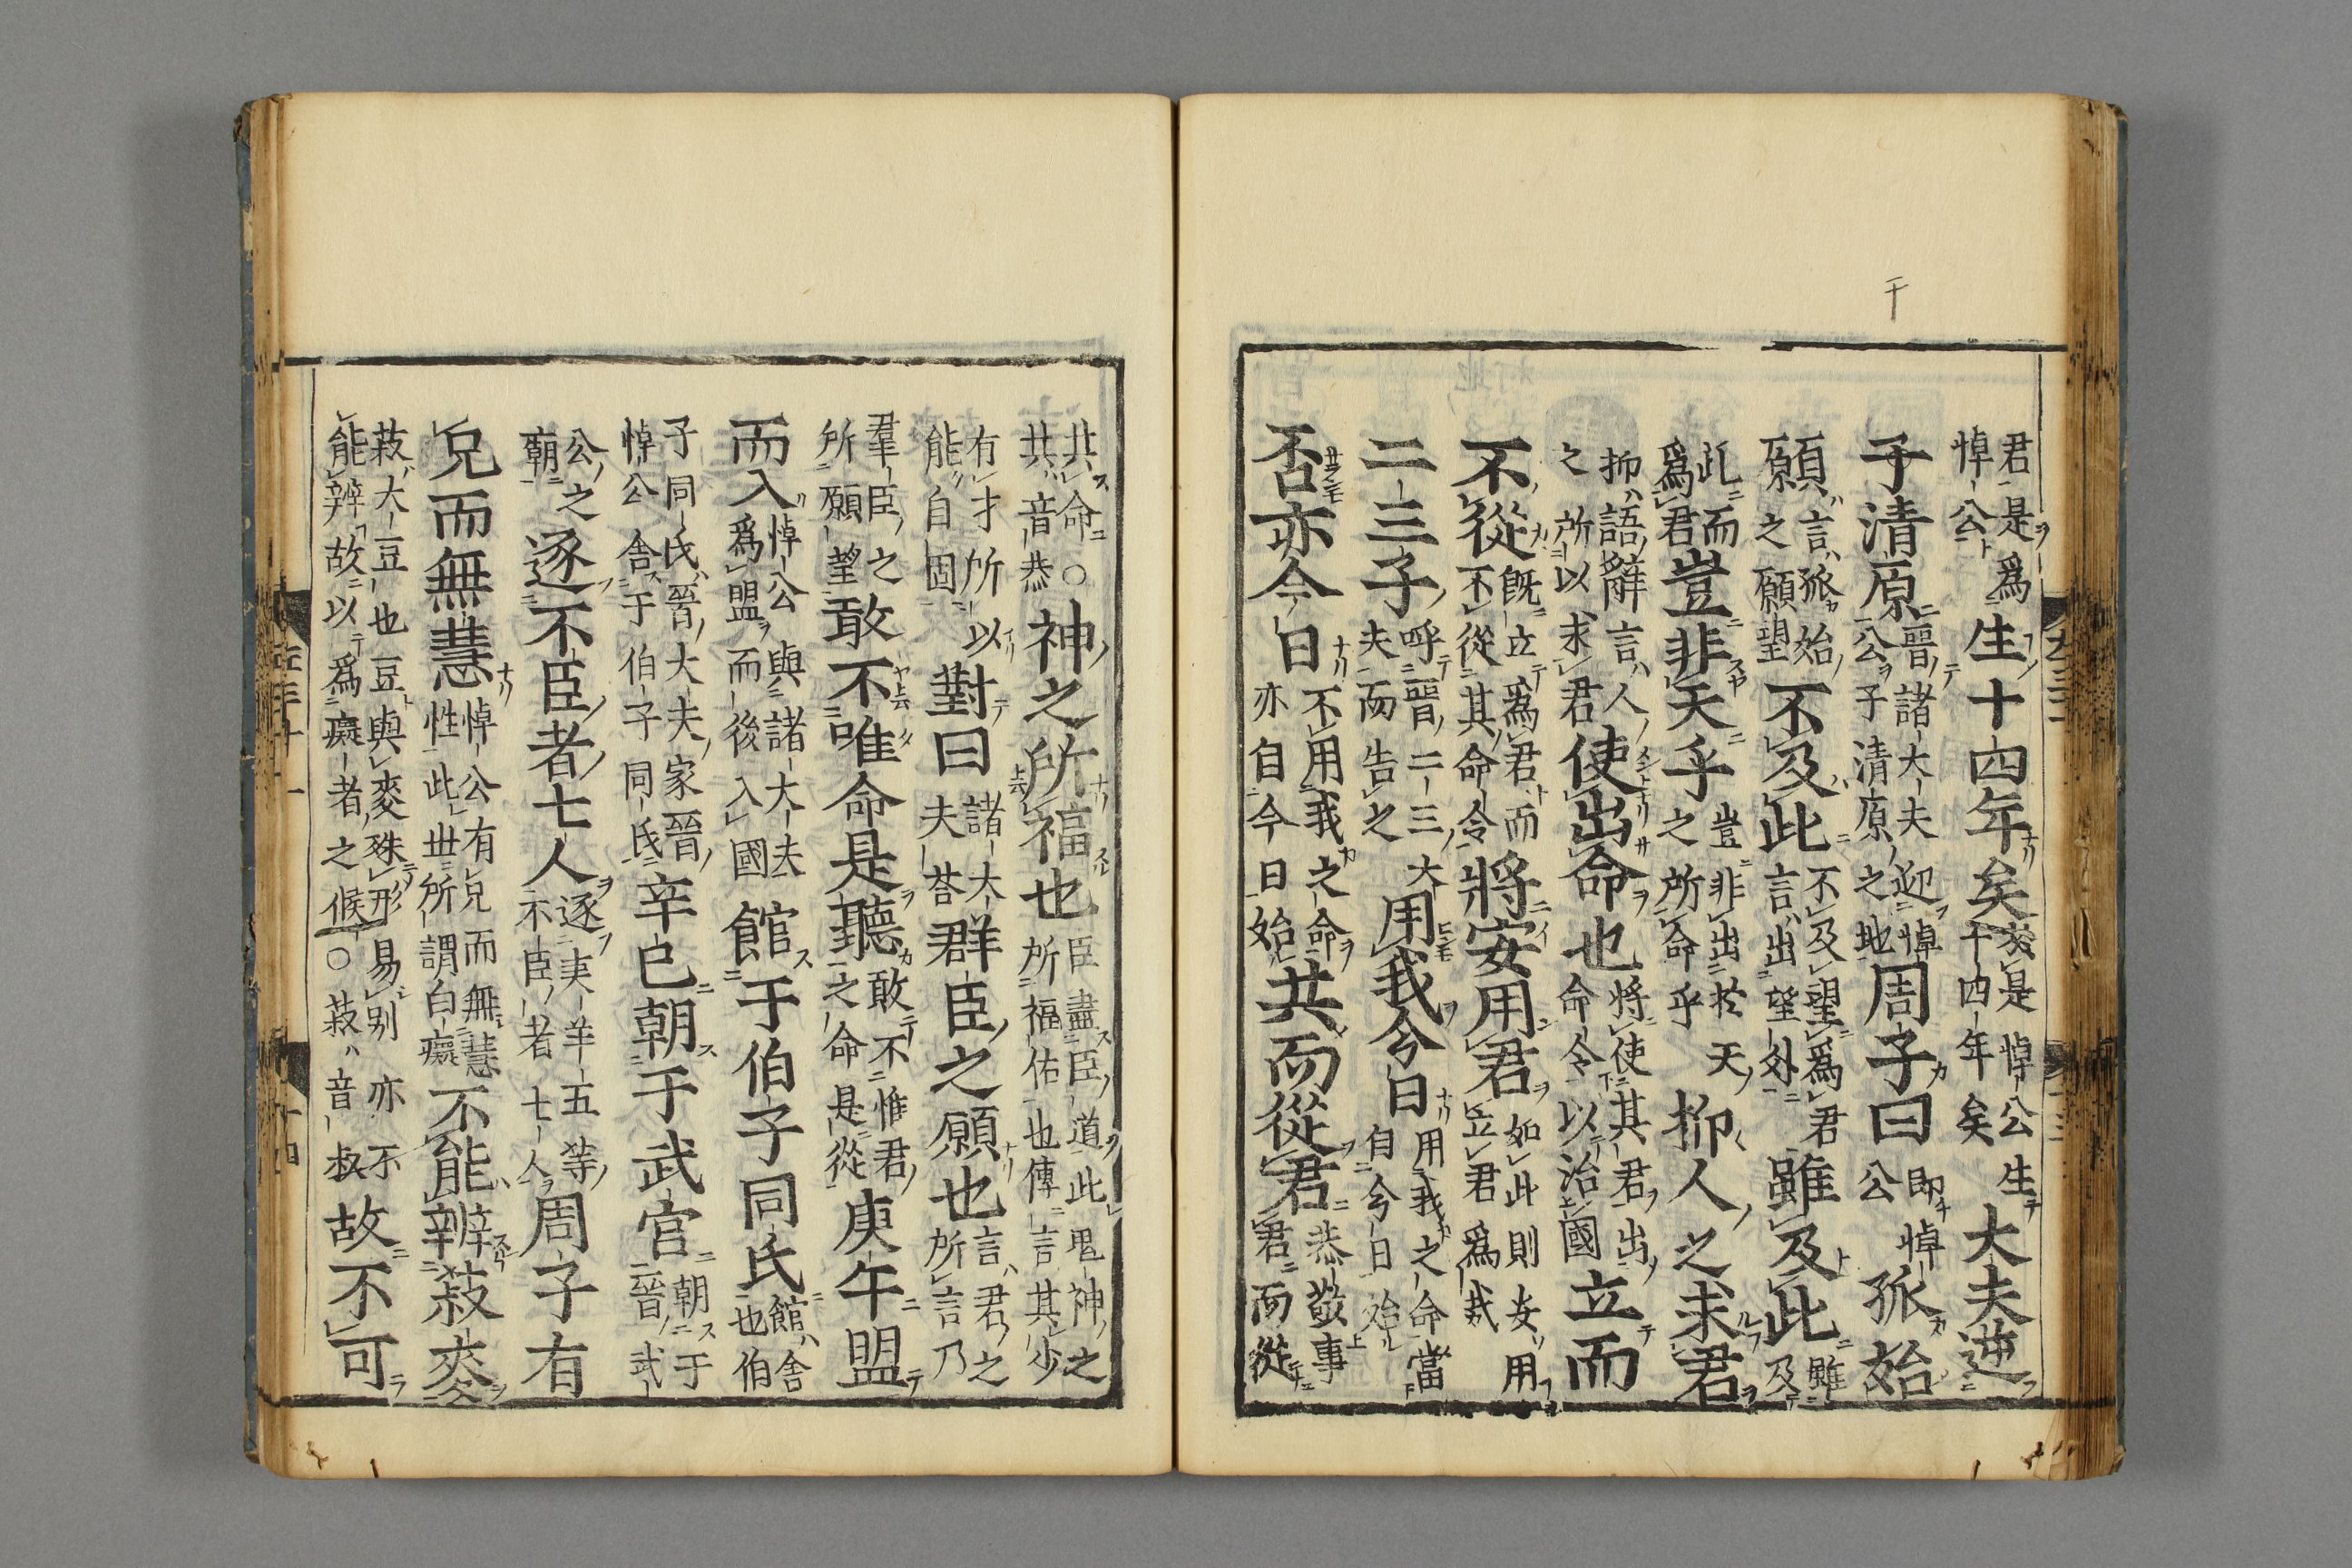 君是爲悼公生十四年矣於是悼公生十四年矣大夫逆
子清原晉諸大夫迎悼公子清原之地周子曰即悼公孤始
願言孤始之願望不及此不及望爲君言出望外雖及此雖及
此而爲君豈非天乎豈非出於天之所命乎抑人之求君
抑語辭言人之所以求君使出命也將使其君出命令以治國立而
不從既立爲君而不從其命令將安用君如此則安用立君爲哉
二三子呼晉二三大夫而告之用我今日用我之命當自今日始
否亦今日不用我之命亦自今日始共而從君恭敬事君而從
共命○共音恭神之所福也臣盡臣道此鬼神之所福佑也傳言其少
有才所以能自固對曰諸大夫荅群臣之願也言君之所言乃
羣臣之所願望敢不唯命是聽敢不惟君之命是從庚午盟
而入悼公與諸大夫爲盟而後入國館于伯子同氏館舍也伯
子同氏晉大夫家晉悼公舍于伯子同氏辛巳朝于武宮朝于晉武
公之朝逐不臣者七人逐夷羊五等不臣者七人周子有
兄而無慧悼公有兄而無慧性此世所謂白癡不能辨菽麥
菽大豆也豆與麥殊形易別亦不能辨故以爲癡者之候○菽音叔故不可